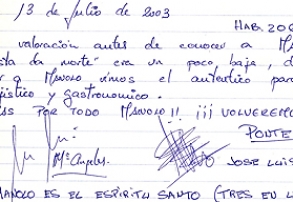 13 de Julio de 2003
HAB. 206
valoración antes de conocer a
sta da morte" era un poco baja, d
r a Manolo vimos el autentico par
jístico y gastronomico.
AS POR TODO MANOLO!! ¡¡¡ VOLVEREMO
PONTE
Mª Angeles.
JOSE LUIS
MANOLO ES EL ESPÍRITU SANTO (TRES EN U